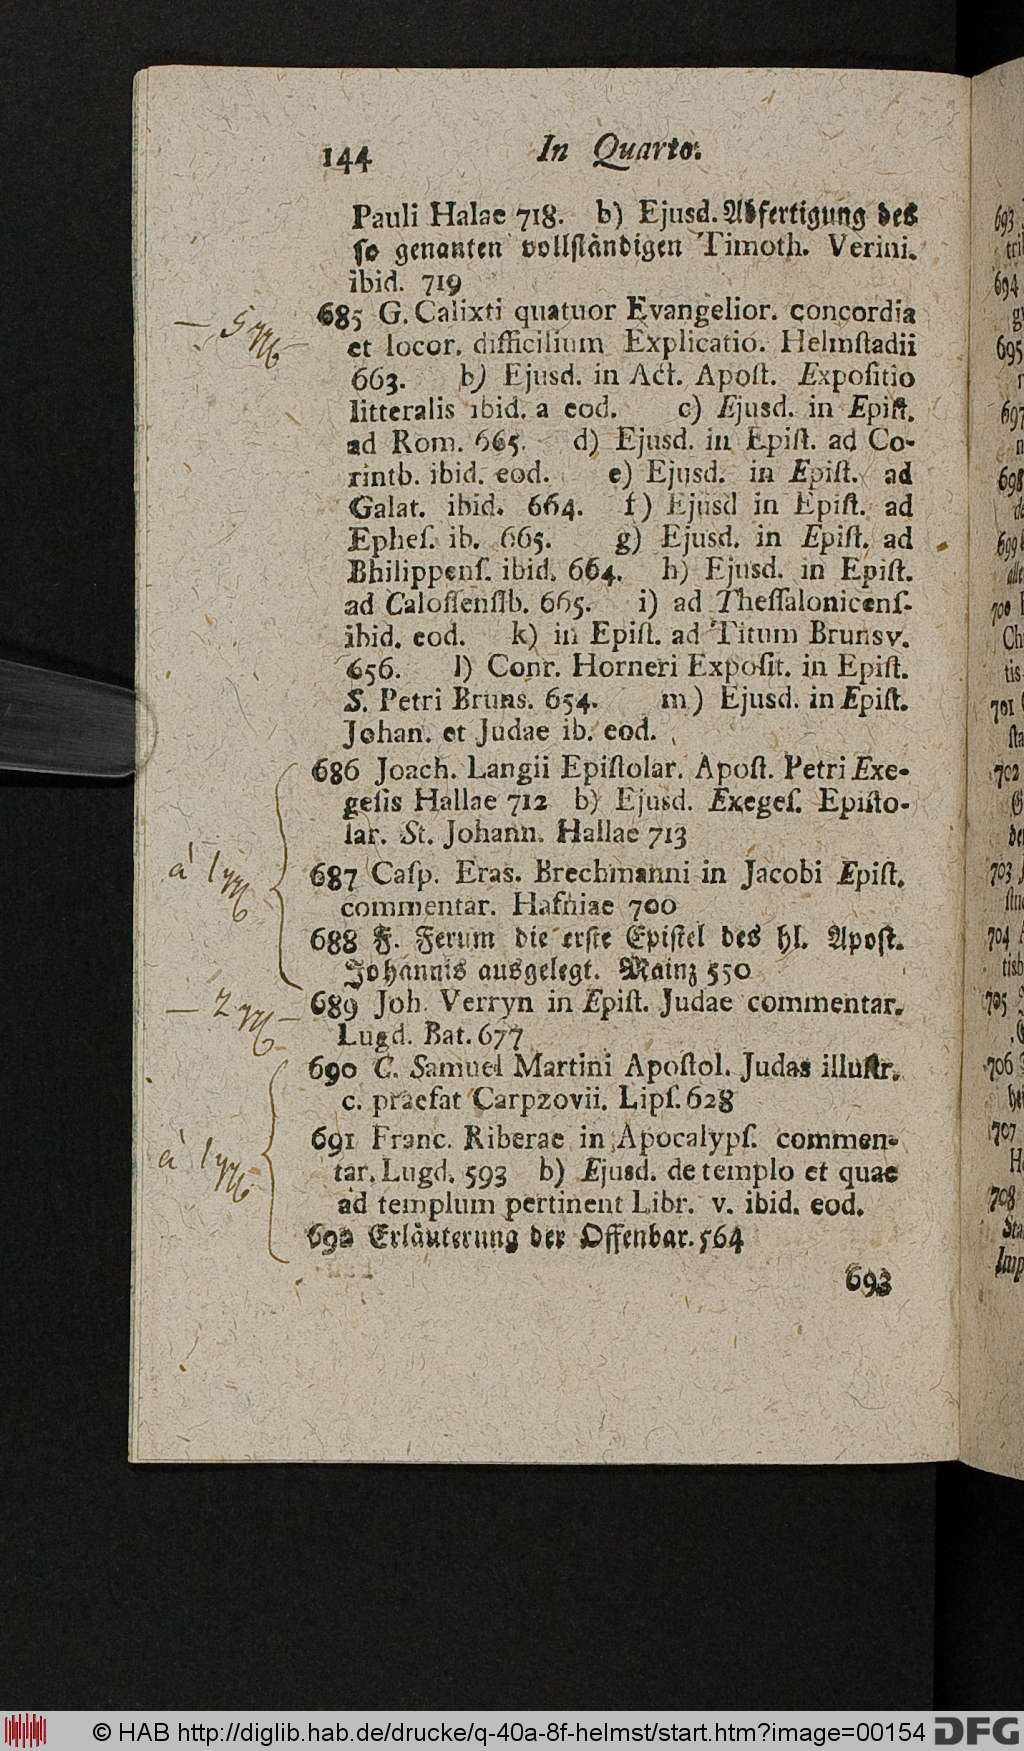 144 In Quarto.
Pauli Halae 718. b) Ejusd. Abfertigung des
so genanten vollständigen Timoth. Verini.
ibid. 719
685 G. Calixti quatuor Evangelior. concordia
et locor. difficilium Explicatio. Helmſtadii
663. b) Ejusd. in Act. Apoſt. Expoſitio
litteralis ibid. a eod. c) Ejusd. in Epiſt.
ad Rom. 665. d) Ejusd. in Epiſt. ad Co-
rintb. ibid. eod. e) Ejusd. in Epiſt. ad
Galat. ibid. 664. f) Ejusd in Epiſt. ad
Epheſ. ib. 665. g) Ejusd. in Epiſt. ad
Bhilippenſ. ibid. 664. h) Ejusd. in Epiſt.
ad Caloſſenſib. 665. i) ad Theſſalonicenſ.
ibid. eod. k) in Epiſt. ad Titum Brunsv.
656. l) Conr. Horneri Expoſit. in Epiſt.
S. Petri Bruns. 654. m) Ejusd. in Epiſt.
Johan. et Judae ib. eod.
686 Joach. Langii Epiſtolar. Apoſt. Petri Exe-
geſis Hallae 712 b) Ejusd. Exegeſ. Epiſto-
lar. St. Johann. Hallae 713
687 Caſp. Eras. Brechmanni in Jacobi Epiſt.
commentar. Hafniae 700
688 F. Ferum die erſte Epiſtel des hl. Apoſt.
Johannis ausgelegt. Mainz 550
689 Joh. Verryn in Epiſt. Judae commentar.
Lugd. Bat. 677
690 C. Samuel Martini Apoſtol. Judas illuſtr.
c. praefat Carpzovii. Lipſ. 628
691 Franc. Riberae in Apocalypſ. commen-
tar. Lugd. 593 b) Ejusd. de templo et quae
ad templum pertinent Libr. v. ibid. eod.
692 Erläuterung der Offenbar. 564
693
© HAB http://diglib.hab.de/drucke/q-40a-8f-helmst/start.htm?image=00154 DFG